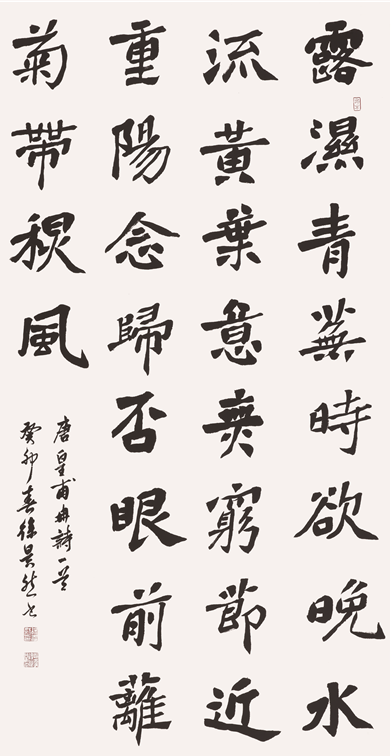 露濕青蕪時欲晚水
流黃葉意無窮節近
重陽念歸否眼前離
菊帶秋風
唐皇甫冉詩一首
癸卯春徐